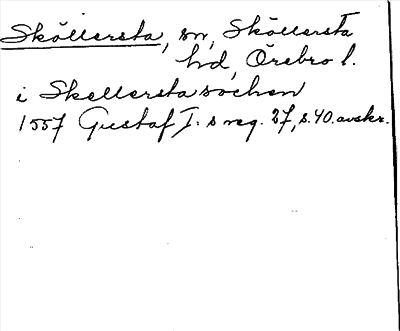 Sköllersta, sn, Sköllersta
hd, Örebro l.
i Skellersta sochen
1557 Gustaf I:s reg. 27, s. 40. avskr.